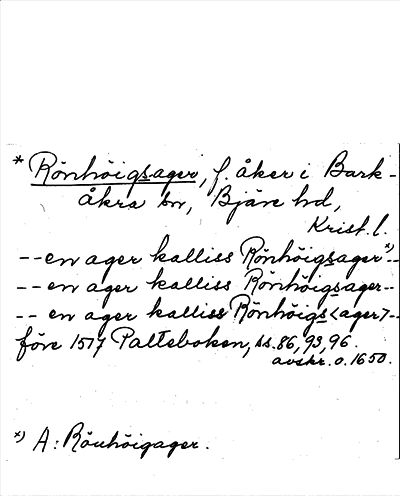 * Rönhöigsager, f. åker i Bark-
åkra sn, Bjäre hd,
Krist. l.
-- en ager kalliss Rönhöigsager x) --
-- en ager kalliss Rönhöigsager --
-- en ager kalliss Rönhöigs<ager> --
före 1517 Palteboken, ss. 86, 93, 96.
avskr. o. 1650.
x) A: Röuhöigager.